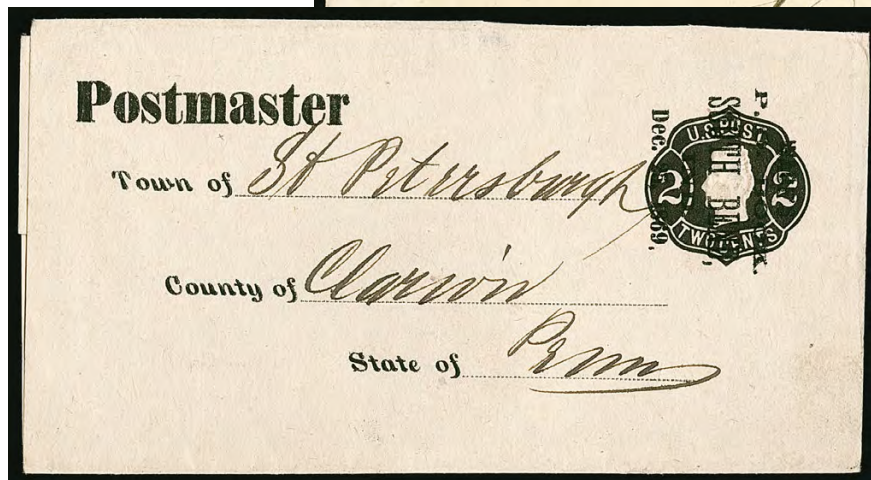 Postmaster
Town of St Petersburgh
County of Clarion
State of Penn
U.S. POST
2 2
TWO CENTS
SOUTH BEND,
Dec. 1869,